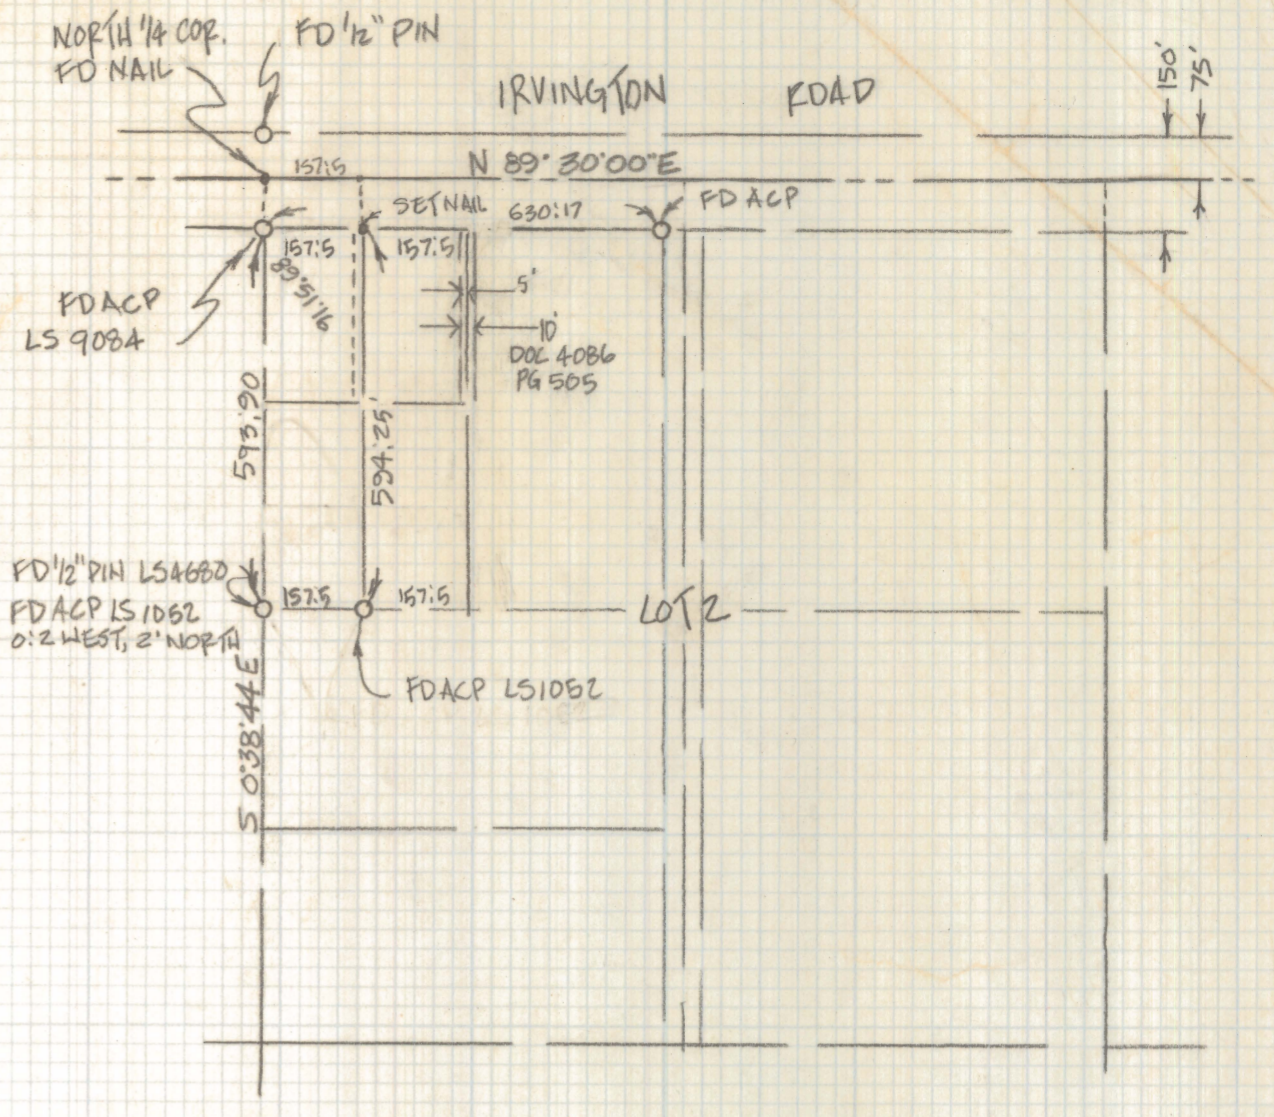 NORTH 1/4 COR.
FD NAIL
FD 1/2" PIN
IRVINGTON ROAD
150'
75'
157.5
N 89° 30'00"E
SET NAIL
630.17
FD ACP
157.5
157.5
89°51'16
FD ACP
LS 9084
5'
10'
DOC 4086
PG 505
593.90
594.25'
FD 1/2" PIN LS4680
FD ACP LS 1052
0.2 WEST, 2' NORTH
157.5
157.5
LOT 2
FD ACP LS1052
S 0°38'44 E